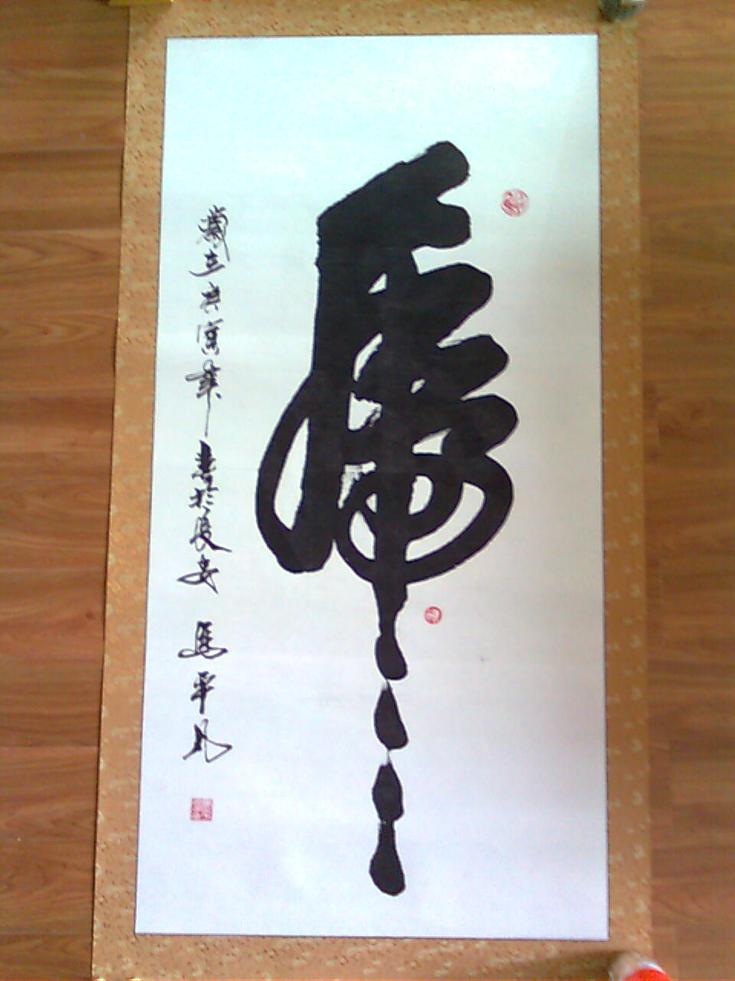 虎
歲在庚寅年書於長安 馬平凡